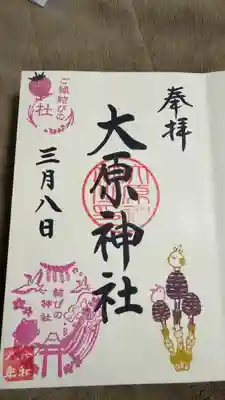 奉拝
大原神社
三月八日
ご縁結びの
社
結びの
神社